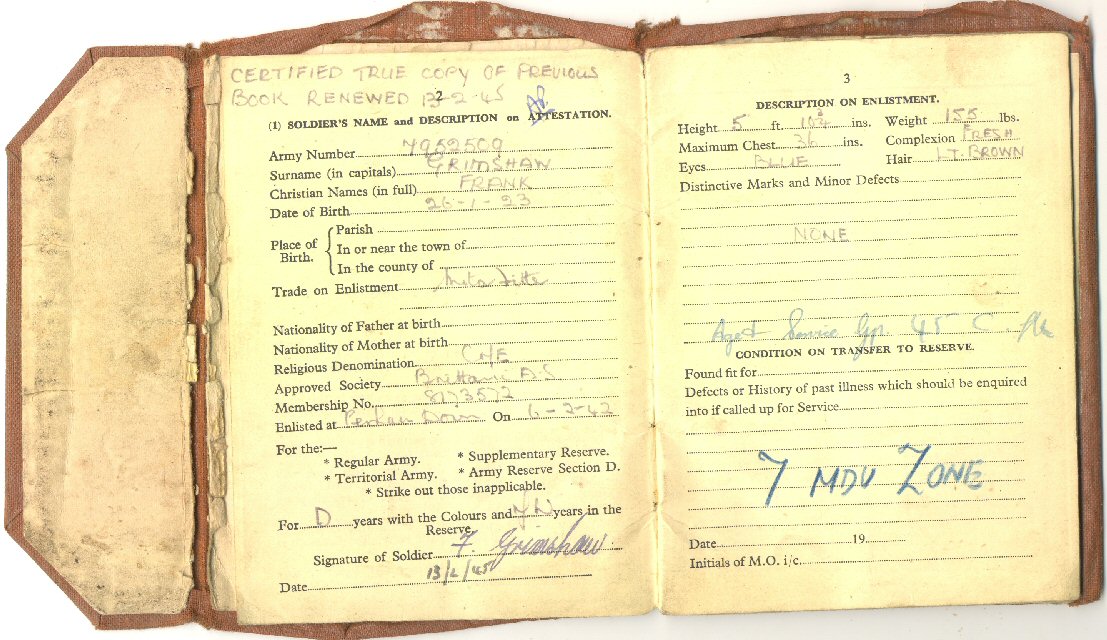 CERTIFIED TRUE COPY OF PREVIOUS
BOOK RENEWED 13-2-45
2
(1) SOLDIER'S NAME and DESCRIPTION on ATTESTATION.
Army Number 7952509
Surname (in capitals) GRIMSHAW
Christian Names (in full) FRANK
Date of Birth 26-1-23
Place of Birth.
Parish
In or near the town of
In the county of
Trade on Enlistment
Nationality of Father at birth
Nationality of Mother at birth
Religious Denomination C of E
Approved Society A.S
Membership No. 8173572
Enlisted at On 6-2-42
For the:—
* Regular Army. * Supplementary Reserve.
* Territorial Army. * Army Reserve Section D.
* Strike out those inapplicable.
For D years with the Colours and years in the
Reserve.
Signature of Soldier F. Grimshaw
13/2/45
Date
3
DESCRIPTION ON ENLISTMENT.
Height 5 ft. ins. Weight 155 lbs.
Maximum Chest 36 ins. Complexion FRESH
Eyes BLUE Hair LT. BROWN
Distinctive Marks and Minor Defects
NONE
Age & Service Grp. 45 C
CONDITION ON TRANSFER TO RESERVE.
Found fit for
Defects or History of past illness which should be enquired
into if called up for Service
7 MDU ZONE
Date 19
Initials of M.O. i/c.